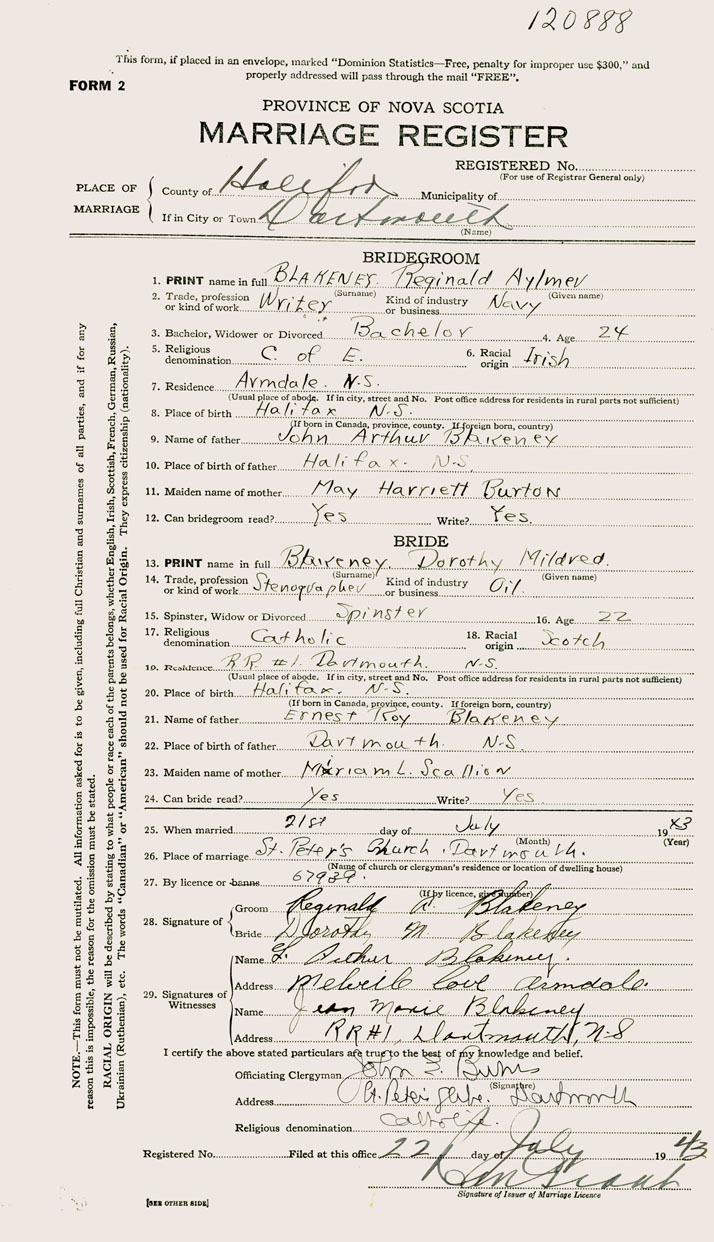 120888
This form, if placed in an envelope, marked "Dominion Statistics—Free, penalty for improper use $300," and
properly addressed will pass through the mail "FREE".
FORM 2
PROVINCE OF NOVA SCOTIA
MARRIAGE REGISTER
REGISTERED No.
(For use of Registrar General only)
PLACE OF MARRIAGE
County of Halifax Municipality of
If in City or Town Dartmouth
(Name)
BRIDEGROOM
1. PRINT name in full BLAKENEY Reginald Aylmer
(Surname) (Given name)
2. Trade, profession or kind of work Writer Kind of industry or business Navy
3. Bachelor, Widower or Divorced Bachelor 4. Age 24
5. Religious denomination C. of E. 6. Racial origin Irish
7. Residence Armdale. N.S.
(Usual place of abode. If in city, street and No. Post office address for residents in rural parts not sufficient)
8. Place of birth Halifax N.S.
(If born in Canada, province, county. If foreign born, country)
9. Name of father John Arthur Blakeney
10. Place of birth of father Halifax. N.S.
11. Maiden name of mother May Harriett Burton
12. Can bridegroom read? Yes Write? Yes.
BRIDE
13. PRINT name in full Blakeney. Dorothy Mildred.
(Surname) (Given name)
14. Trade, profession or kind of work Stenographer Kind of industry or business Oil.
15. Spinster, Widow or Divorced Spinster 16. Age 22
17. Religious denomination Catholic 18. Racial origin Scotch
19. Residence RR #1. Dartmouth. N.S.
(Usual place of abode. If in city, street and No. Post office address for residents in rural parts not sufficient)
20. Place of birth Halifax. N.S.
(If born in Canada, province, county. If foreign born, country)
21. Name of father Ernest Roy Blakeney
22. Place of birth of father Dartmouth. N.S.
23. Maiden name of mother Miriam L. Scallion
24. Can bride read? Yes Write? Yes.
25. When married 21st day of July 1943
(Month) (Year)
26. Place of marriage St. Peter's Church. Dartmouth.
(Name of church or clergyman's residence or location of dwelling house)
27. By licence or banns 67939.
(If by licence, give number)
28. Signature of
Groom Reginald A. Blakeney
Bride Dorothy M Blakeney
29. Signatures of Witnesses
Name Arthur Blakeney.
Address Melville Cove Armdale.
Name Jean Marie Blakeney
Address RR#1, Dartmouth, N-S
I certify the above stated particulars are true to the best of my knowledge and belief.
Officiating Clergyman John Burns
(Signature)
Address St. Peter's Glebe. Dartmouth
Religious denomination Catholic.
Registered No. Filed at this office 22 day of July 1943
Signature of Issuer of Marriage Licence
[SEE OTHER SIDE]
NOTE.—This form must not be mutilated. All information asked for is to be given, including full Christian and surnames of all parties, and if for any
reason this is impossible, the reason for the omission must be stated.
RACIAL ORIGIN will be described by stating to what people or race each of the parents belongs, whether English, Irish, Scottish, French, German, Russian,
Ukrainian (Ruthenian), etc. The words "Canadian" or "American" should not be used for Racial Origin. They express citizenship (nationality).